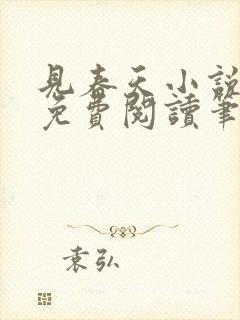 見春天小說
免費閱讀筆
袁弘